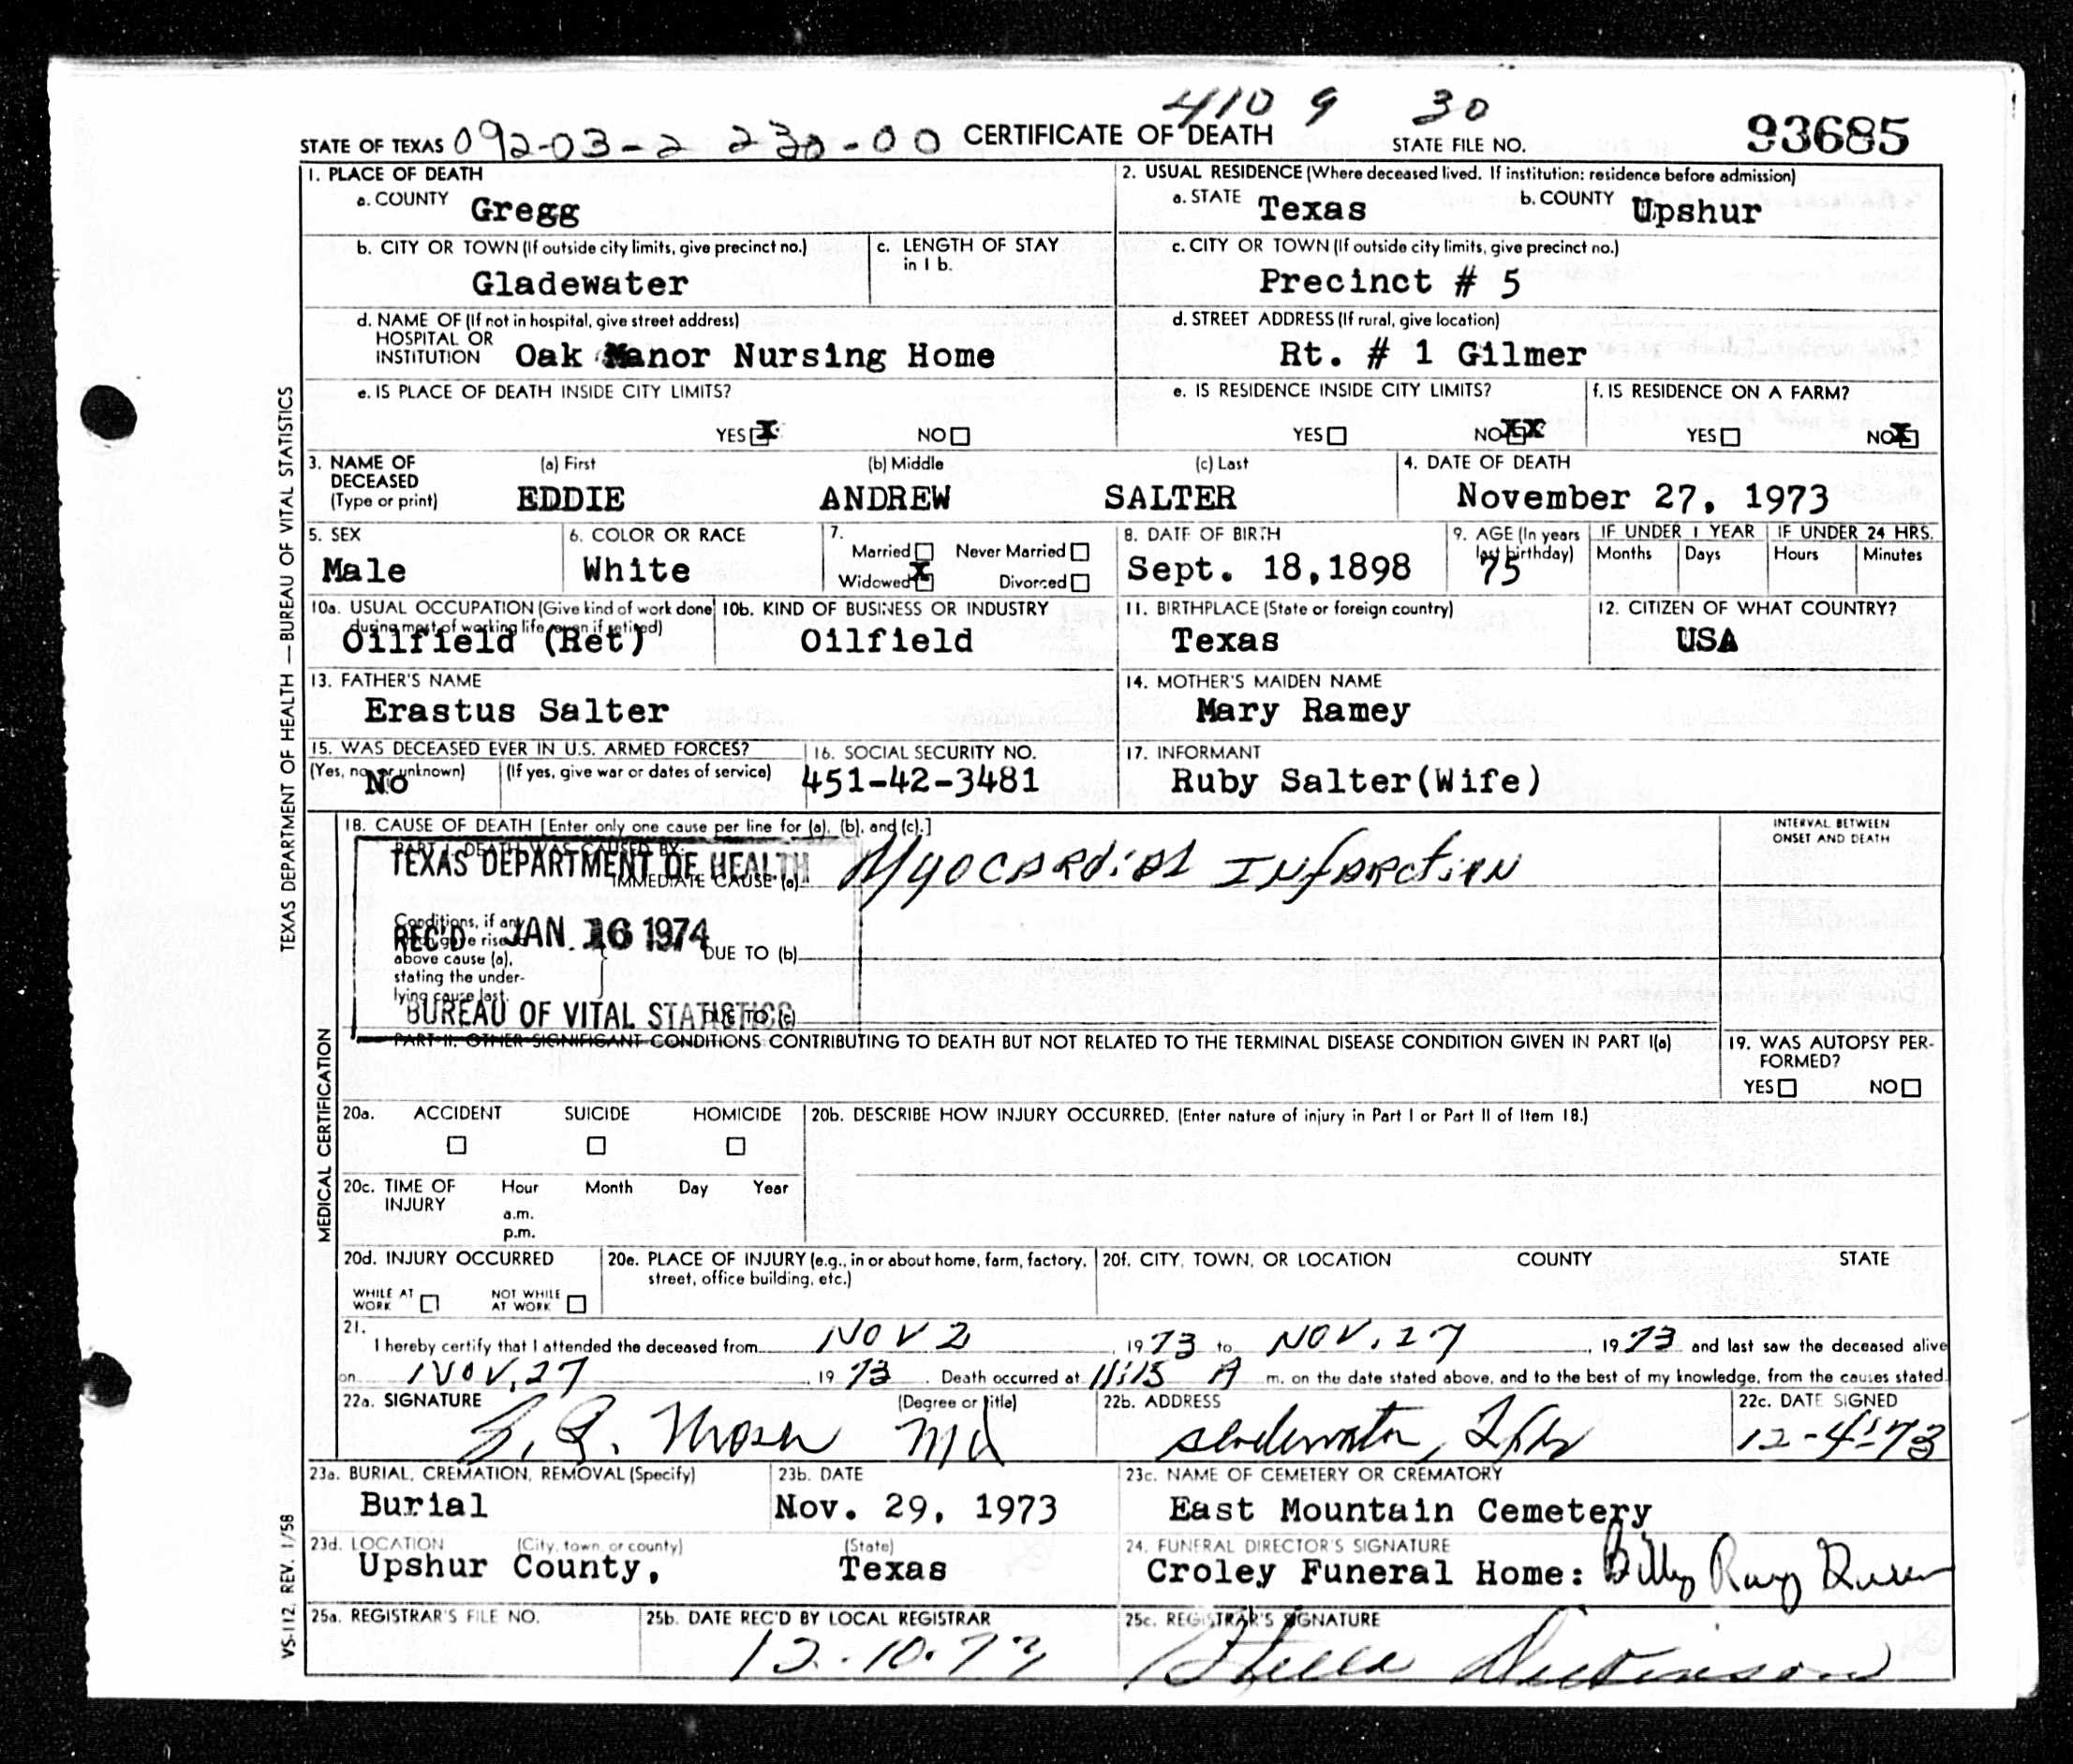 410 9 30
STATE OF TEXAS 092-03-2 230-00 CERTIFICATE OF DEATH STATE FILE NO. 93685
TEXAS DEPARTMENT OF HEALTH — BUREAU OF VITAL STATISTICS
VS-112, REV. 1/58
1. PLACE OF DEATH
a. COUNTY Gregg
2. USUAL RESIDENCE (Where deceased lived. If institution: residence before admission)
a. STATE Texas b. COUNTY Upshur
b. CITY OR TOWN (If outside city limits, give precinct no.)
Gladewater
c. LENGTH OF STAY
in 1 b.
c. CITY OR TOWN (If outside city limits, give precinct no.)
Precinct # 5
d. NAME OF (If not in hospital, give street address)
HOSPITAL OR
INSTITUTION Oak Manor Nursing Home
d. STREET ADDRESS (If rural, give location)
Rt. # 1 Gilmer
e. IS PLACE OF DEATH INSIDE CITY LIMITS?
YES X NO
e. IS RESIDENCE INSIDE CITY LIMITS?
YES NO XX
f. IS RESIDENCE ON A FARM?
YES NO X
3. NAME OF
DECEASED
(Type or print)
(a) First (b) Middle (c) Last
EDDIE ANDREW SALTER
4. DATE OF DEATH
November 27, 1973
5. SEX
Male
6. COLOR OR RACE
White
7.
Married Never Married
Widowed X Divorced
8. DATE OF BIRTH
Sept. 18,1898
9. AGE (In years
last birthday)
75
IF UNDER 1 YEAR
Months Days
IF UNDER 24 HRS.
Hours Minutes
10a. USUAL OCCUPATION (Give kind of work done
during most of working life, even if retired)
Oilfield (Ret)
10b. KIND OF BUSINESS OR INDUSTRY
Oilfield
11. BIRTHPLACE (State or foreign country)
Texas
12. CITIZEN OF WHAT COUNTRY?
USA
13. FATHER'S NAME
Erastus Salter
14. MOTHER'S MAIDEN NAME
Mary Ramey
15. WAS DECEASED EVER IN U.S. ARMED FORCES?
(Yes, no, or unknown) (If yes, give war or dates of service)
No
16. SOCIAL SECURITY NO.
451-42-3481
17. INFORMANT
Ruby Salter(Wife)
MEDICAL CERTIFICATION
18. CAUSE OF DEATH [Enter only one cause per line for (a), (b), and (c).]
INTERVAL BETWEEN
ONSET AND DEATH
PART I. DEATH WAS CAUSED BY:
TEXAS DEPARTMENT OF HEALTH
IMMEDIATE CAUSE (a) Myocardial Infarction
Conditions, if any,
which gave rise to
above cause (a),
stating the under-
lying cause last.
REC'D JAN. 16 1974
DUE TO (b)
BUREAU OF VITAL STATISTICS
DUE TO (c)
PART II. OTHER SIGNIFICANT CONDITIONS CONTRIBUTING TO DEATH BUT NOT RELATED TO THE TERMINAL DISEASE CONDITION GIVEN IN PART I(a)
19. WAS AUTOPSY PER-
FORMED?
YES NO
20a. ACCIDENT SUICIDE HOMICIDE
20b. DESCRIBE HOW INJURY OCCURRED. (Enter nature of injury in Part I or Part II of Item 18.)
20c. TIME OF
INJURY
Hour Month Day Year
a.m.
p.m.
20d. INJURY OCCURRED
WHILE AT
WORK
NOT WHILE
AT WORK
20e. PLACE OF INJURY (e.g., in or about home, farm, factory,
street, office building, etc.)
20f. CITY, TOWN, OR LOCATION COUNTY STATE
21.
I hereby certify that I attended the deceased from NOV 2, 1973 to NOV. 27, 1973 and last saw the deceased alive
on NOV. 27, 1973. Death occurred at 11:15 A m. on the date stated above, and to the best of my knowledge, from the causes stated.
22a. SIGNATURE (Degree or title)
Md
22b. ADDRESS
Gladewater, Tex
22c. DATE SIGNED
12-4-73
23a. BURIAL, CREMATION, REMOVAL (Specify)
Burial
23b. DATE
Nov. 29, 1973
23c. NAME OF CEMETERY OR CREMATORY
East Mountain Cemetery
23d. LOCATION (City, town, or county) (State)
Upshur County, Texas
24. FUNERAL DIRECTOR'S SIGNATURE
Croley Funeral Home: Billy Ray
25a. REGISTRAR'S FILE NO.
25b. DATE REC'D BY LOCAL REGISTRAR
12.10.73
25c. REGISTRAR'S SIGNATURE
Stella Dickinson